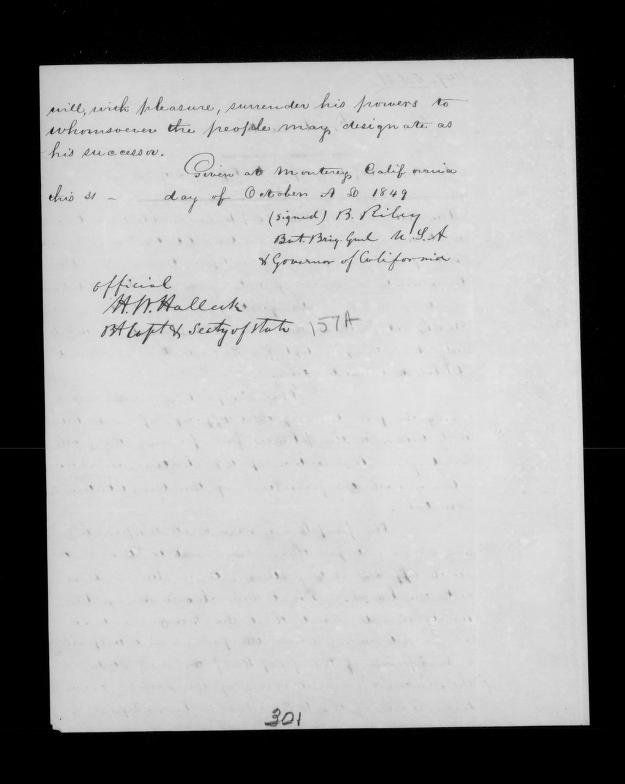 will, with pleasure, surrender his powers to
whomsoever the people may designate as
his successor.
Given at Monterey, California
this 31 - day of October A D 1849
(signed) B. Riley
Bvt. Brig. Genl U.S.A
& Governor of California.
official
H. W. Halleck.
Bt Capt & Secty of State 157A
301